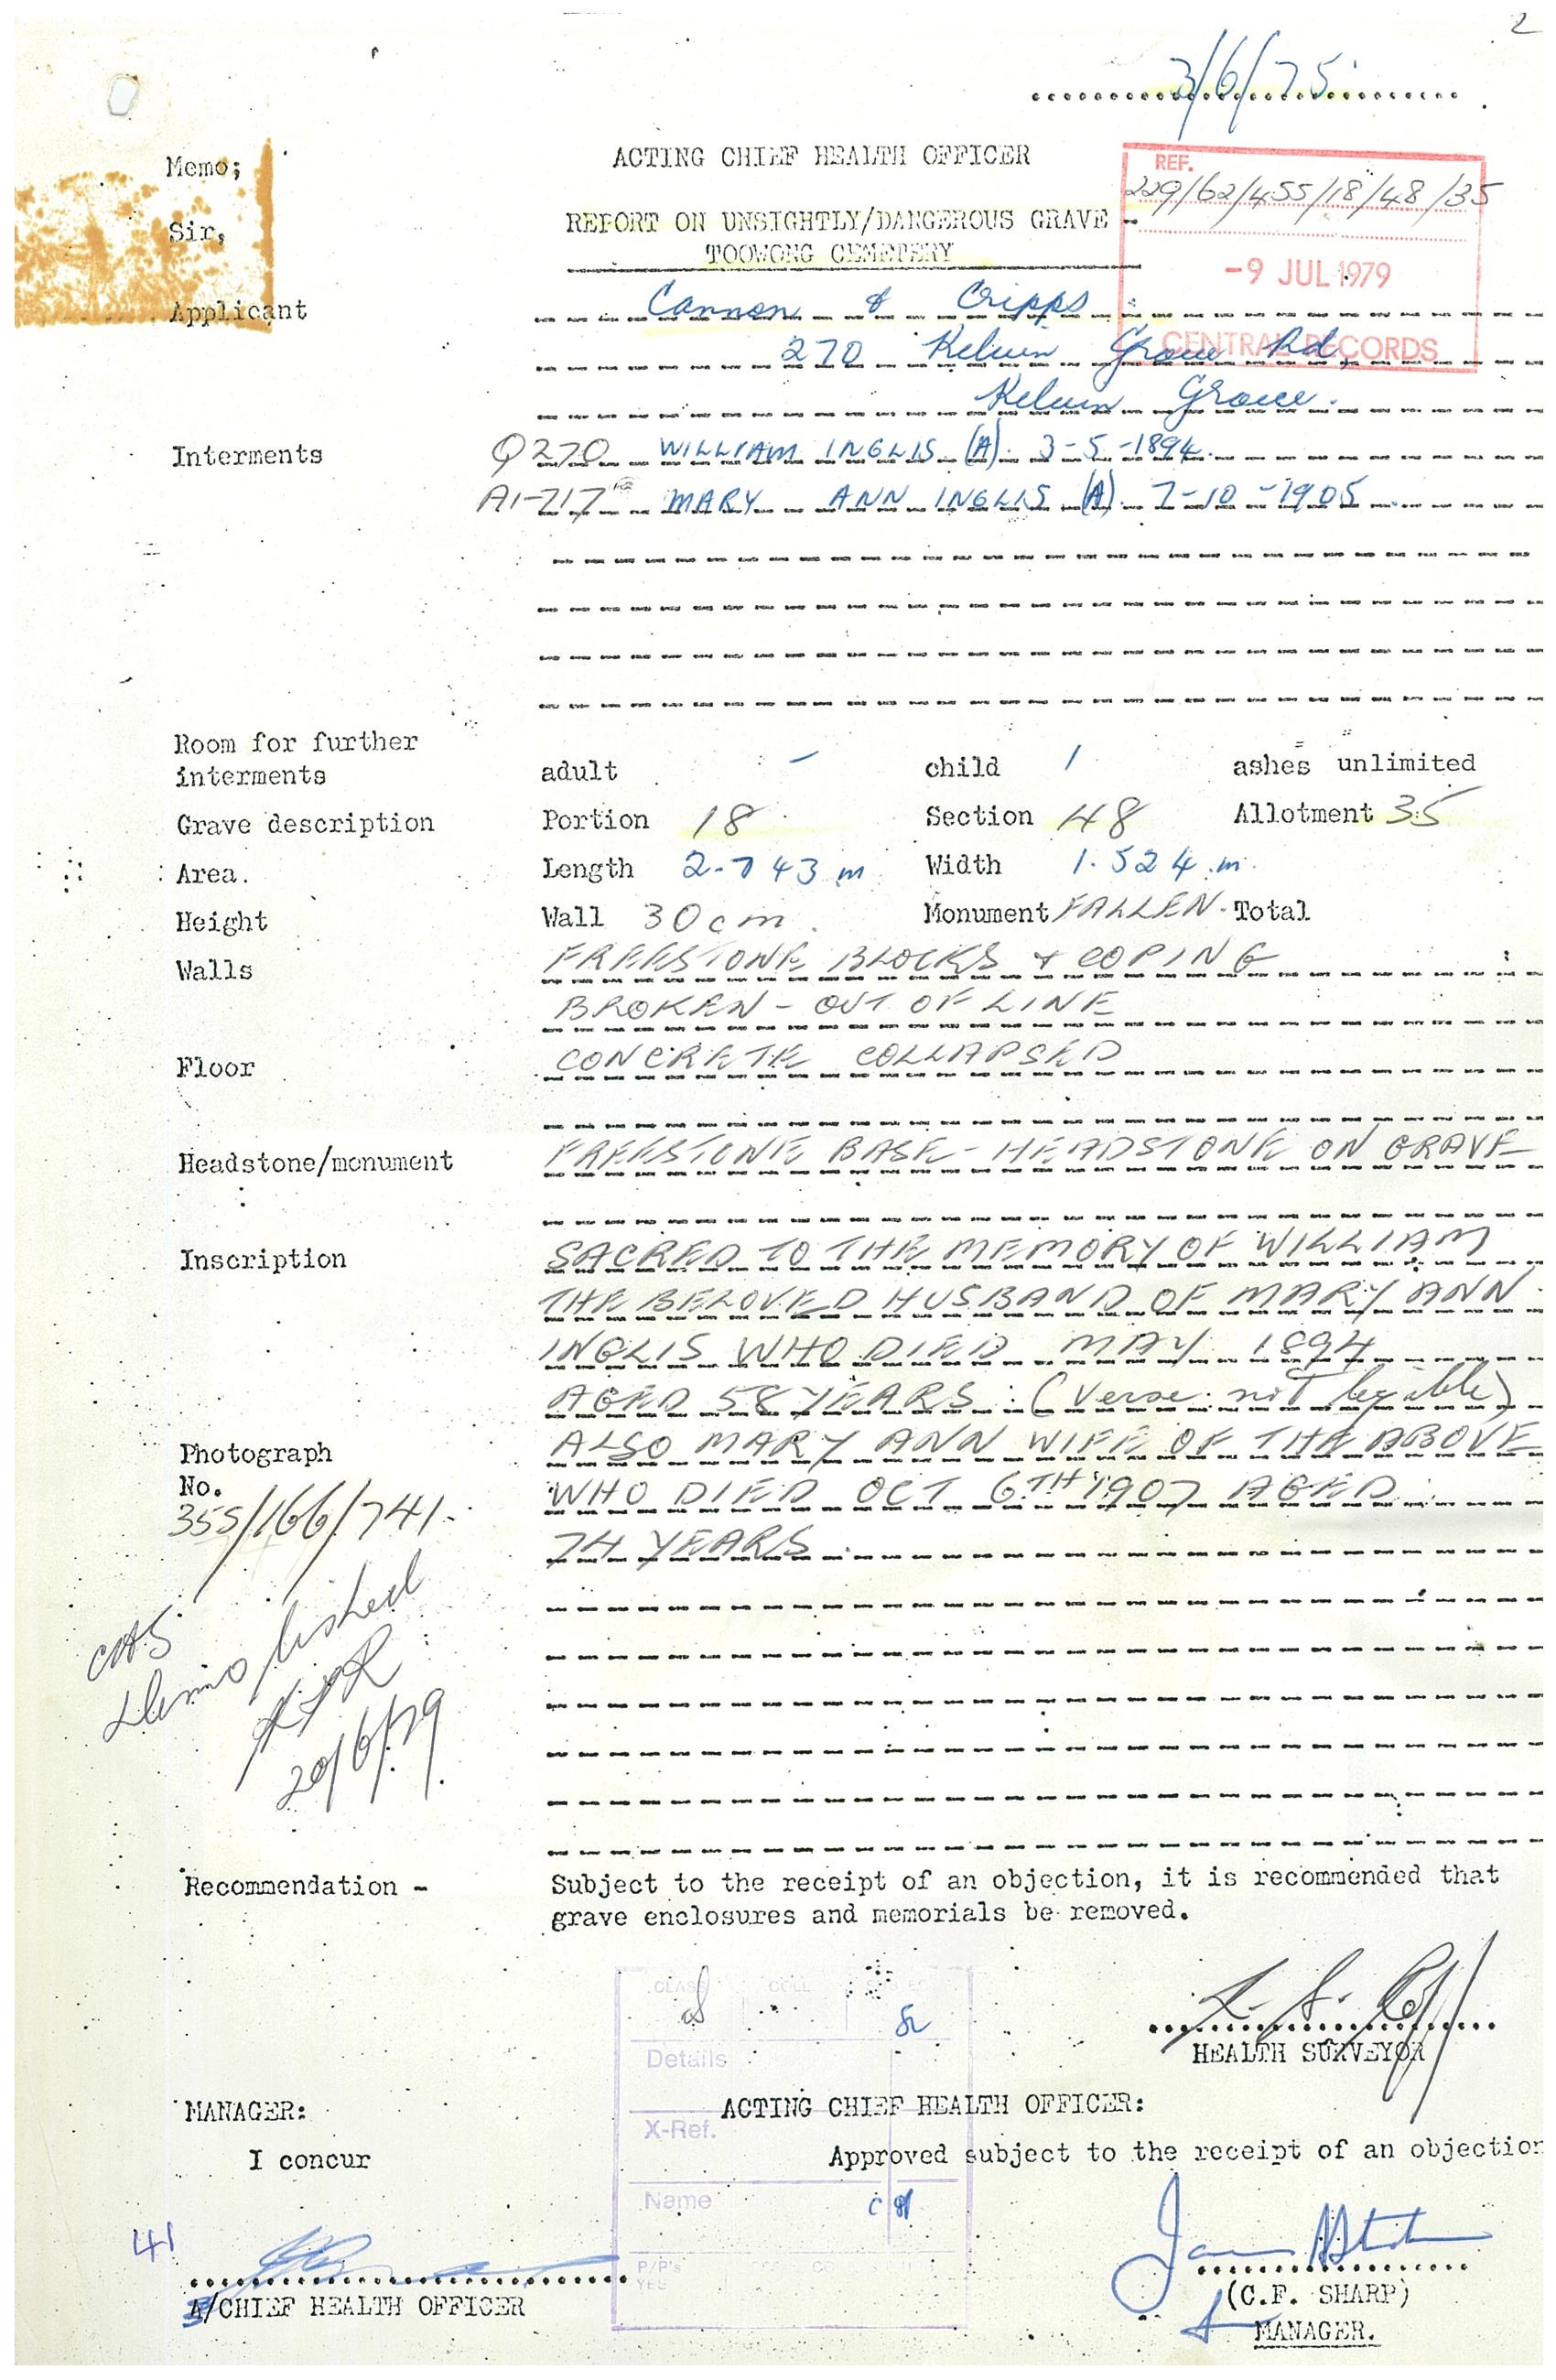 2
3/6/75
Memo;
ACTING CHIEF HEALTH OFFICER
REF.
229/62/455/18/48/35
Sir,
REPORT ON UNSIGHTLY/DANGEROUS GRAVE -
TOOWONG CEMETERY
-9 JUL 1979
CENTRAL RECORDS
Applicant Cannon & Cripps
270 Kelvin Grove Rd,
Kelvin Grove.
Interments Q270 WILLIAM INGLIS (A). 3-5-1894.
A1-717 MARY ANN INGLIS (A). 7-10-1905.
Room for further
interments adult - child 1 ashes unlimited
Grave description Portion 18 Section 48 Allotment 35
Area. Length 2.743 m Width 1.524 m.
Height Wall 30cm. Monument FALLEN. Total
Walls FREESTONE BLOCKS & COPING
BROKEN - OUT OF LINE
Floor CONCRETE COLLAPSED
Headstone/monument FREESTONE BASE - HEADSTONE ON GRAVE
Inscription SACRED TO THE MEMORY OF WILLIAM
THE BELOVED HUSBAND OF MARY ANN
INGLIS WHO DIED MAY 1894
AGED 58 YEARS. (Verse not legible)
ALSO MARY ANN WIFE OF THE ABOVE
WHO DIED OCT 6TH 1907 AGED
74 YEARS.
Photograph
No.
355/166/741.
Demolished
20/6/79
Recommendation - Subject to the receipt of an objection, it is recommended that
grave enclosures and memorials be removed.
CLASS COLL
HEALTH SURVEYOR
Details
MANAGER: ACTING CHIEF HEALTH OFFICER:
X-Ref.
I concur Approved subject to the receipt of an objection
Name
41
P/P's
YES
A/CHIEF HEALTH OFFICER
(C.F. SHARP)
MANAGER.